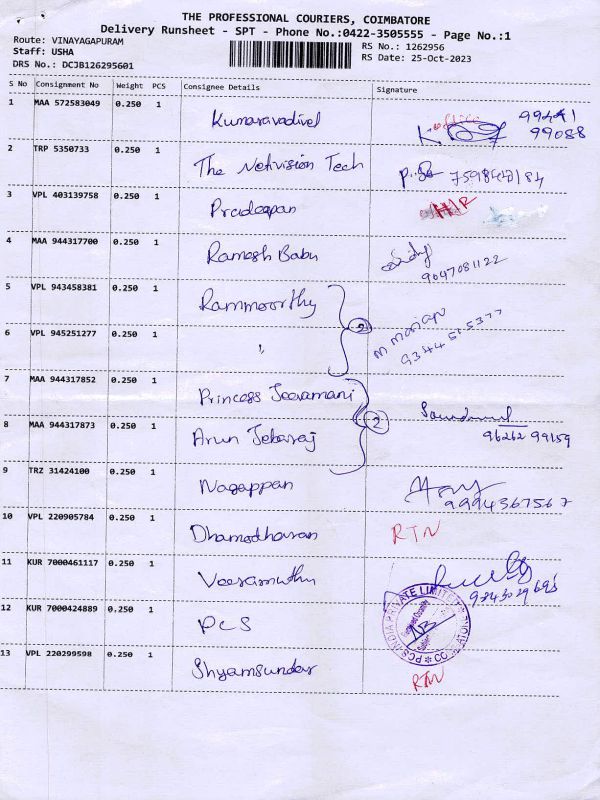 THE PROFESSIONAL COURIERS, COIMBATORE
Delivery Runsheet - SPT - Phone No.:0422-3505555 - Page No.:1
Route: VINAYAGAPURAM
Staff: USHA
DRS No.: DCJB126295601
RS No.: 1262956
RS Date: 25-Oct-2023
S No Consignment No Weight PCS Consignee Details Signature
1 MAA 572583049 0.250 1 Kumaravadivel office 99441
99088
2 TRP 5350733 0.250 1 The Netivision Tech
3 VPL 403139758 0.250 1 Pradeepan
4 MAA 944317700 0.250 1 Ramesh Babu
9047081122
5 VPL 943458381 0.250 1 Rammoorthy
2
6 VPL 945251277 0.250 1 " M Mariap
9344515377
7 MAA 944317852 0.250 1 Princess Jeevamani
2
8 MAA 944317873 0.250 1 Arun Jebaraj
96262 99159
9 TRZ 31424100 0.250 1 Nagappan
9994367567
10 VPL 220905784 0.250 1 Dhamodharan RTN
11 KUR 7000461117 0.250 1 Veeramuthu
9843029695
12 KUR 7000424889 0.250 1 PCS
PCS INDIA PRIVATE LIMITED
13 VPL 220299598 0.250 1 Shyamsundar RTN